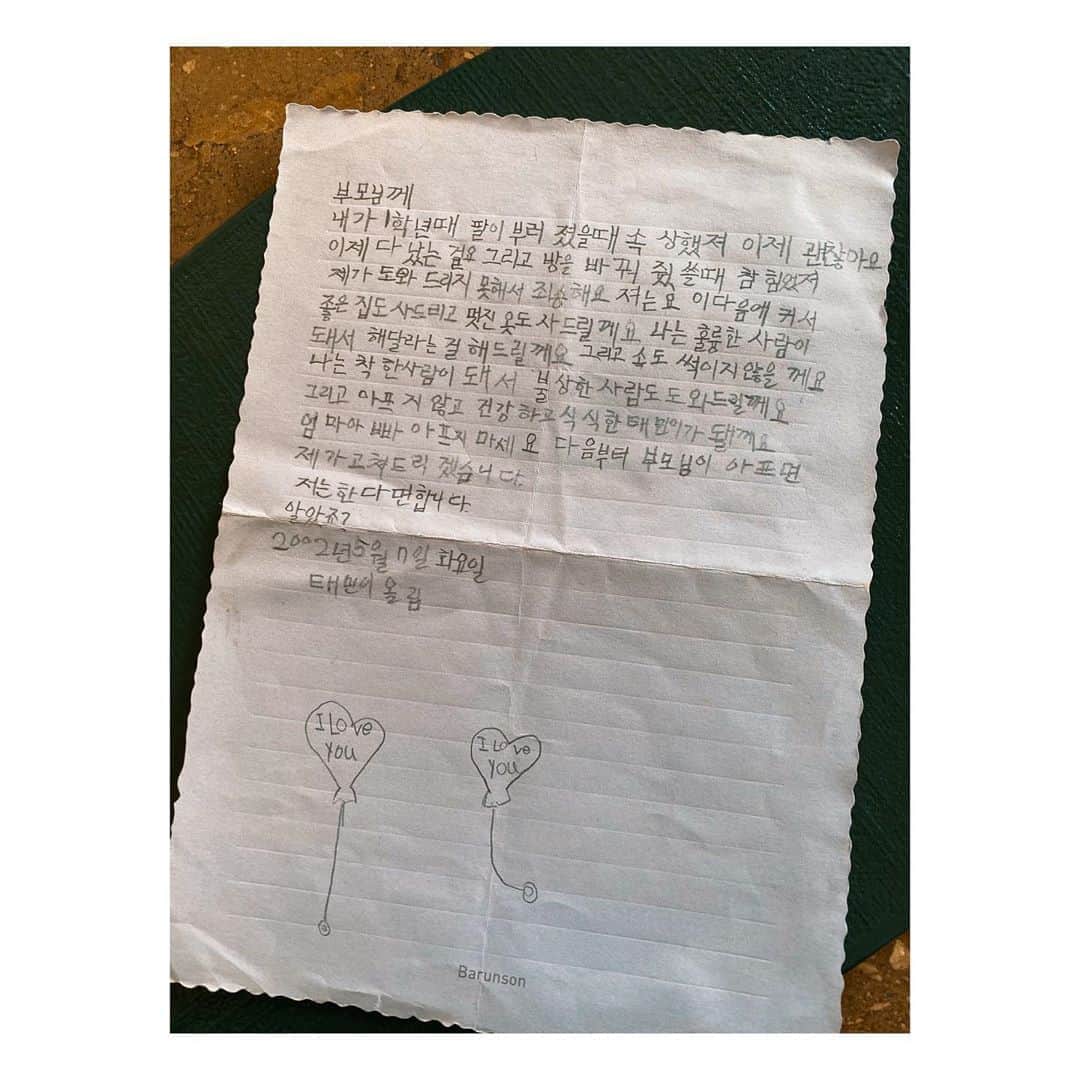 부모님께
내가 1학년때 팔이 부러 졌을때 속 상했져 이제 괜찮아요
이제 다 났는 걸요 그리고 방을 바꾸 쓸때 참 힘었져
제가 도와 드리지 못해서 죄송해요 저는요 이다음에 커서
좋은 집도 사드리고 멋진 옷도 사드릴께요 나는 훌륭한 사람이
돼서 해달라는 걸 해드릴께요 그리고 속도 썩이지 않을 께요
나는 착 한사람이 돼 서 불상한 사람도 도와드릴께요
그리고 아프 지 않고 건강 하고 식 식한 태민이가 됄께요
엄 마아 빠 아프지 마세 요 다음부터 부모님이 아프면
제가고쳐드릭 겠습니 다.
저는한 다 면합니다.
알았죠?
2002년5월 7일 화요일
태민이 올 림
I Love
YOU
I Love
YOU
Barunson